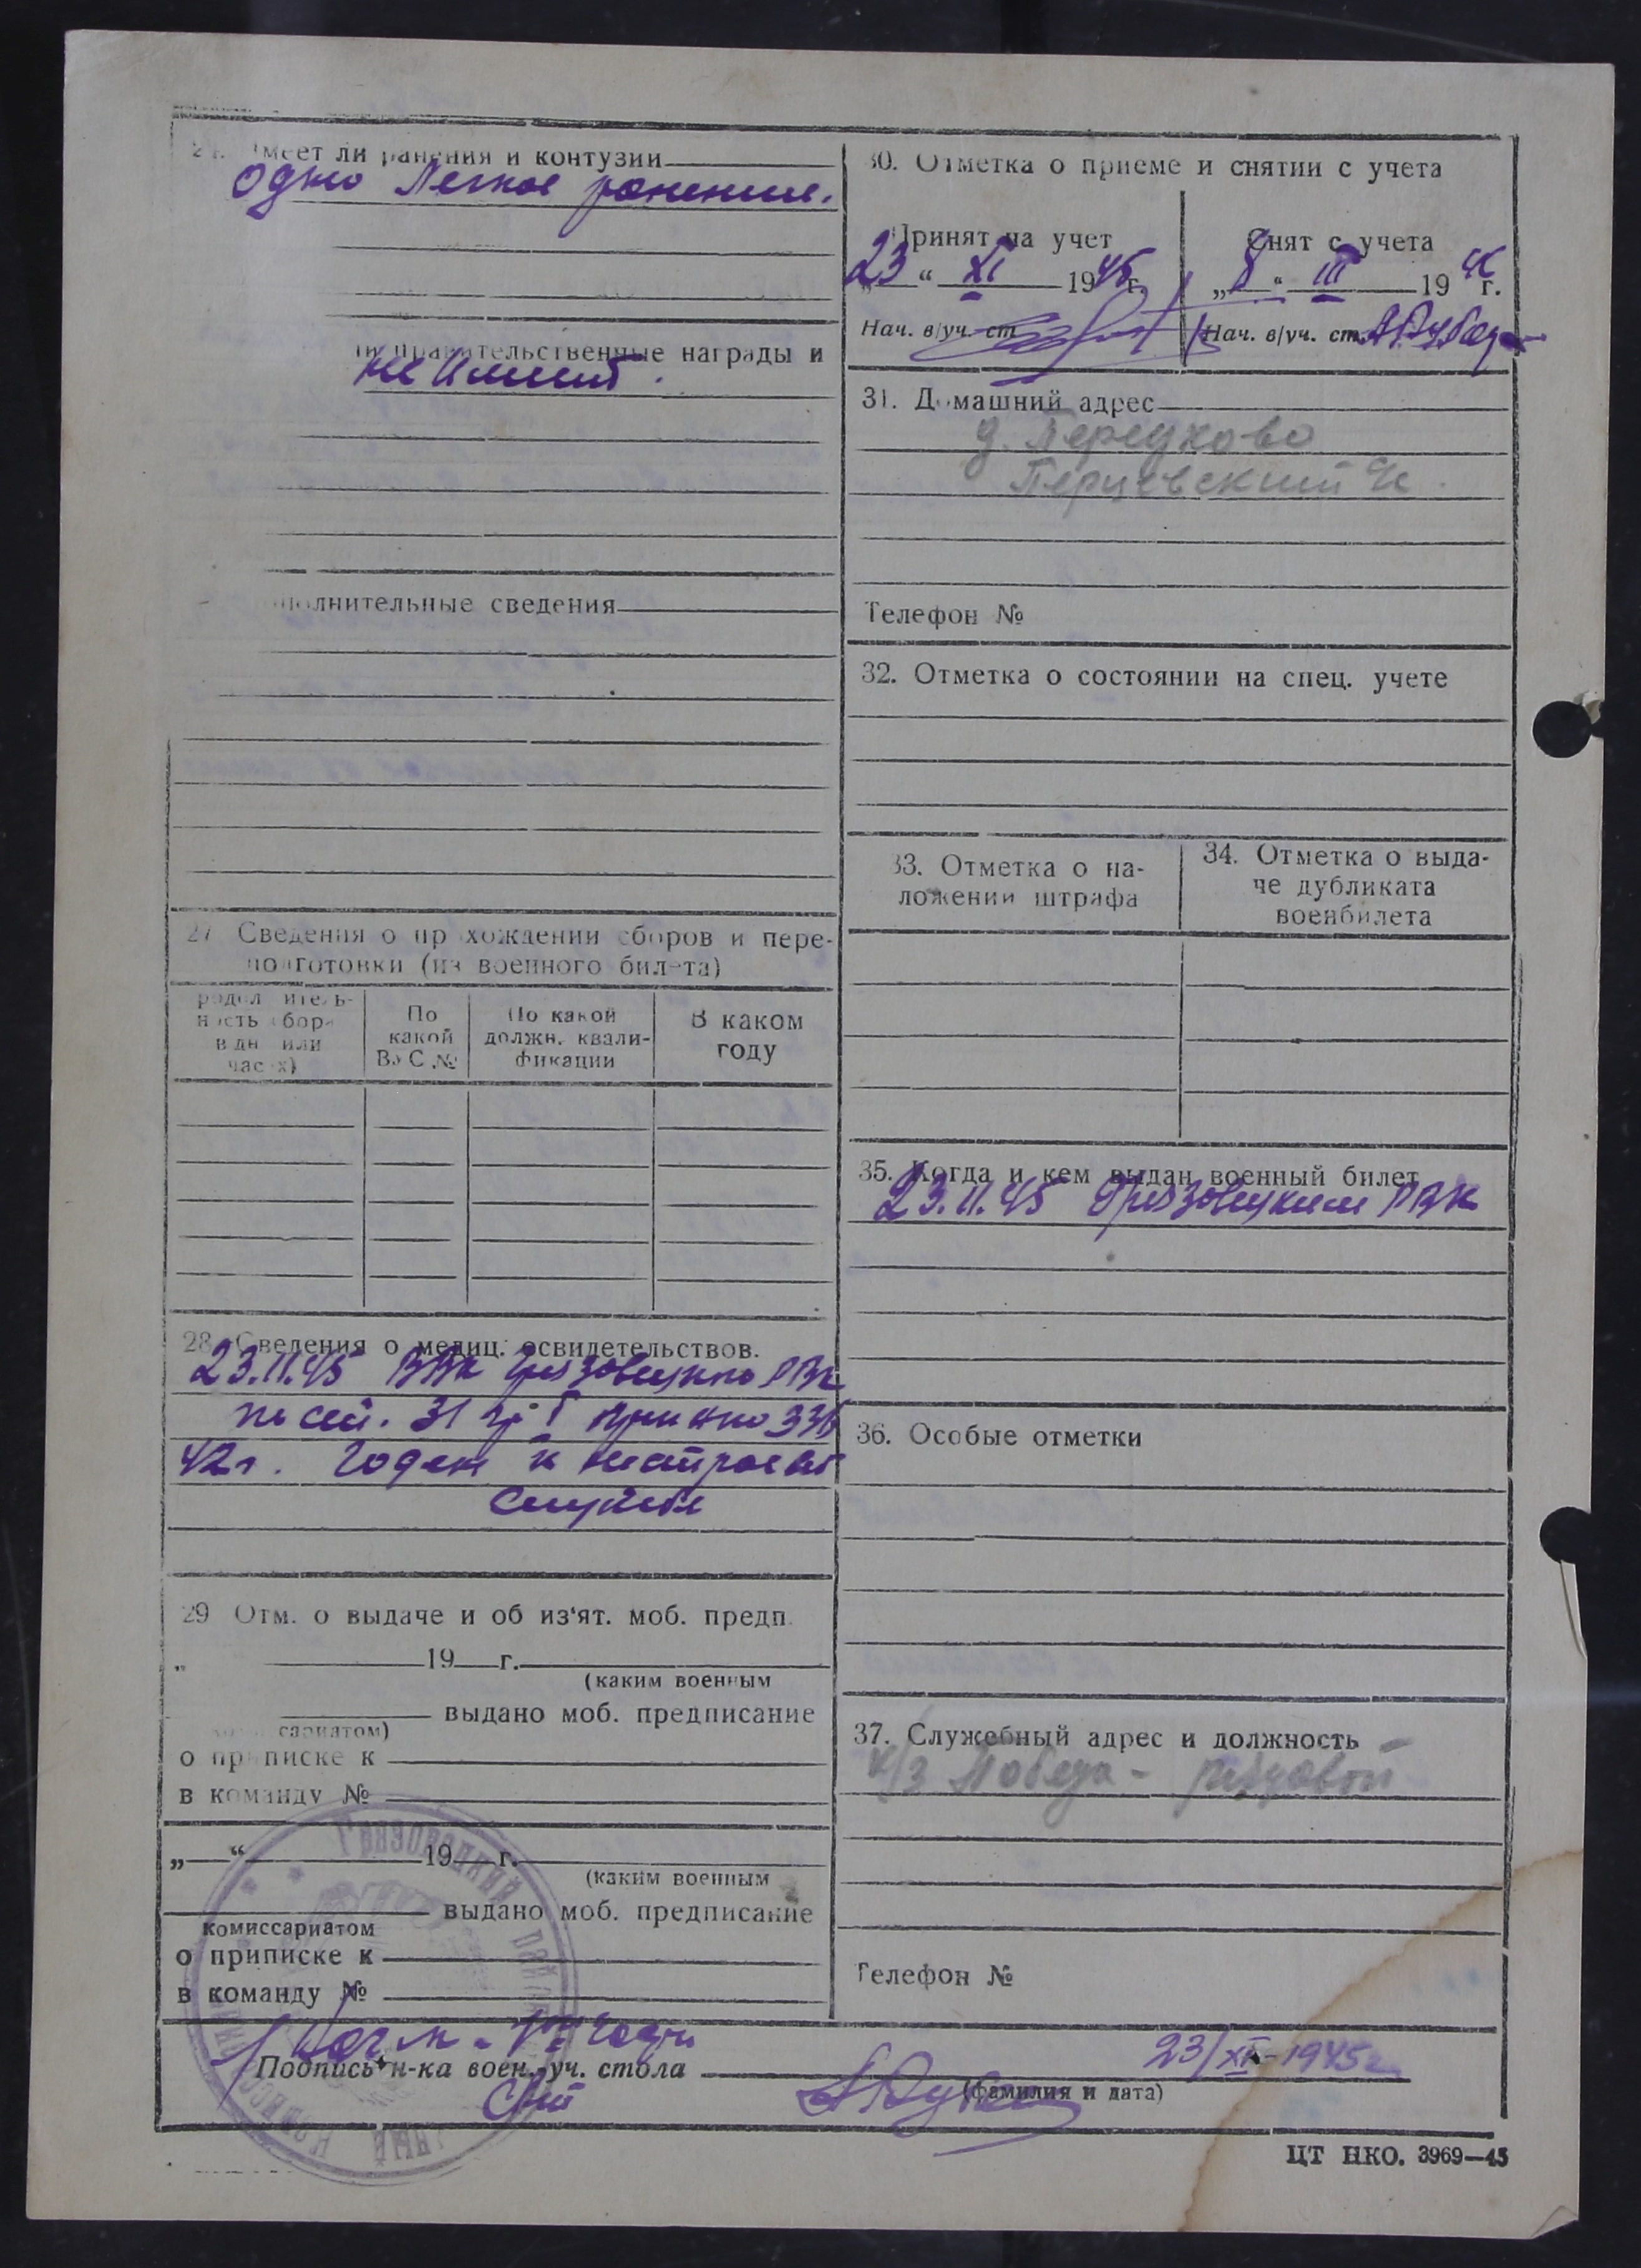 Имеет ли ранения и контузии
Одно легкое ранение.
правительственные награды и
не имеет.
полнительные сведения
27 Сведения о прохождении сборов и пере-
подготовки (из военного билета)
родолжитель-
ность сбора
в дн или
часах)
По
какой
ВУС №
По какой
должн. квали-
фикации
В каком
году
28. Сведения о медиц. освидетельствов.
23.11.45 ВВК Грязовецкого РВК
по 31 гр I 336
42г. Годен к нестроевой
службе
29 Отм. о выдаче и об из‘ят. моб. предп.
„ 19 г.
(каким военным
выдано моб. предписание
сариатом)
о приписке к
в команду №
„ “ 19 г.
(каким военным
выдано моб. предписание
комиссариатом
о приписке к
в команду №
30. Отметка о приеме и снятии с учета
Принят на учет
23 “ XI 1945г.
Нач. в/уч. ст.
Снят с учета
„ “ III 19 г.
Нач. в/уч. ст.
31. Домашний адрес
Перцевский
Телефон №
32. Отметка о состоянии на спец. учете
33. Отметка о на-
ложении штрафа
34. Отметка о выда-
че дубликата
военбилета
35. Когда и кем выдан военный билет
23.11.45 Грязовецким РВК
36. Особые отметки
37. Служебный адрес и должность
к/з Победа - рядовой
Телефон №
Подпись н-ка воен.-уч. стола
23/XI-1945г.
(фамилия и дата)
ЦТ НКО. 3969—45